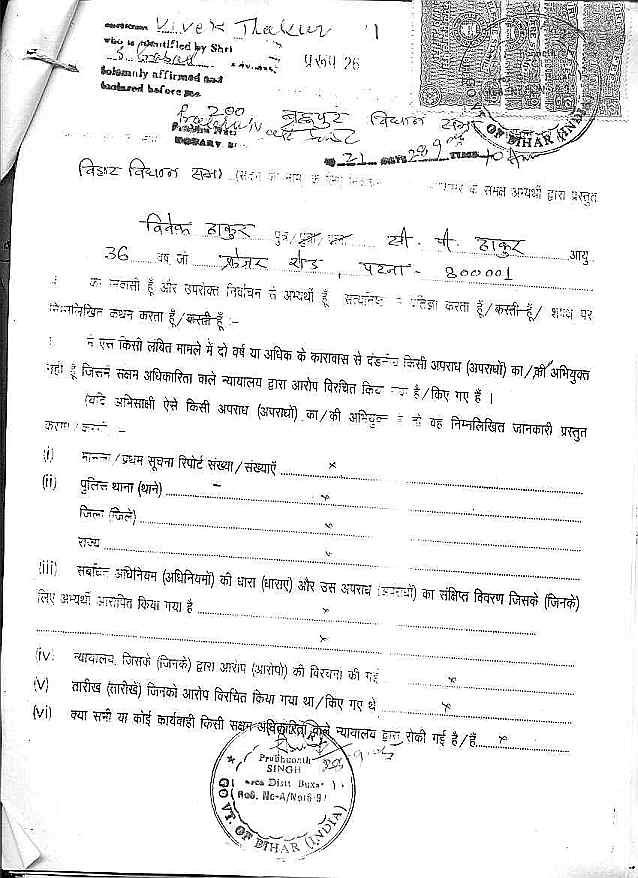 Vivek Thakur
who is identified by Shri
प्ररूप 26
Solemnly affirmed and
declared before me
200 ब्रह्मपुर विधान सभा
NOTARY
GOVT. OF BIHAR (INDIA)
21 DATE 28.9.05 TIME 10 Am
बिहार विधान सभा (सदन का नाम) के समक्ष अभ्यर्थी द्वारा प्रस्तुत
विवेक ठाकुर पुत्र/पुत्री/पत्नी सी. पी. ठाकुर आयु
36 वर्ष जो फ्रेजर रोड, पटना - 800001
का निवासी हूँ और उपरोक्त निर्वाचन से अभ्यर्थी हूँ सत्यनिष्ठा से प्रतिज्ञा करता हूँ/करती हूँ/ शपथ पर
निम्नलिखित कथन करता हूँ/करती हूँ :-
मैं ऐसे किसी लंबित मामले में दो वर्ष या अधिक के कारावास से दंडनीय किसी अपराध (अपराधों) का/की अभियुक्त
नहीं हूँ जिसमें सक्षम अधिकारिता वाले न्यायालय द्वारा आरोप विरचित किया गया है/किए गए हैं ।
(यदि अभिसाक्षी ऐसे किसी अपराध (अपराधों) का/की अभियुक्त है तो वह निम्नलिखित जानकारी प्रस्तुत
करेगा/करेगी :-
(i) मामला/प्रथम सूचना रिपोर्ट संख्या/संख्याएँ x
(ii) पुलिस थाना (थाने) x
जिला (जिले) x
राज्य x
(iii) संबंधित अधिनियम (अधिनियमों) की धारा (धाराएं) और उस अपराध (अपराधों) का संक्षिप्त विवरण जिसके (जिनके)
लिए अभ्यर्थी आरोपित किया गया है x
x
(iv) न्यायालय, जिसके (जिनके) द्वारा आरोप (आरोपों) की विरचना की गई x
(v) तारीख (तारीखें) जिनको आरोप विरचित किया गया था/किए गए थे x
(vi) क्या सभी या कोई कार्यवाही किसी सक्षम अधिकारिता वाले न्यायालय द्वारा रोकी गई है/हैं x
Prabhunath
SINGH
Area Distt Buxar
GOVT. OF BIHAR (INDIA)